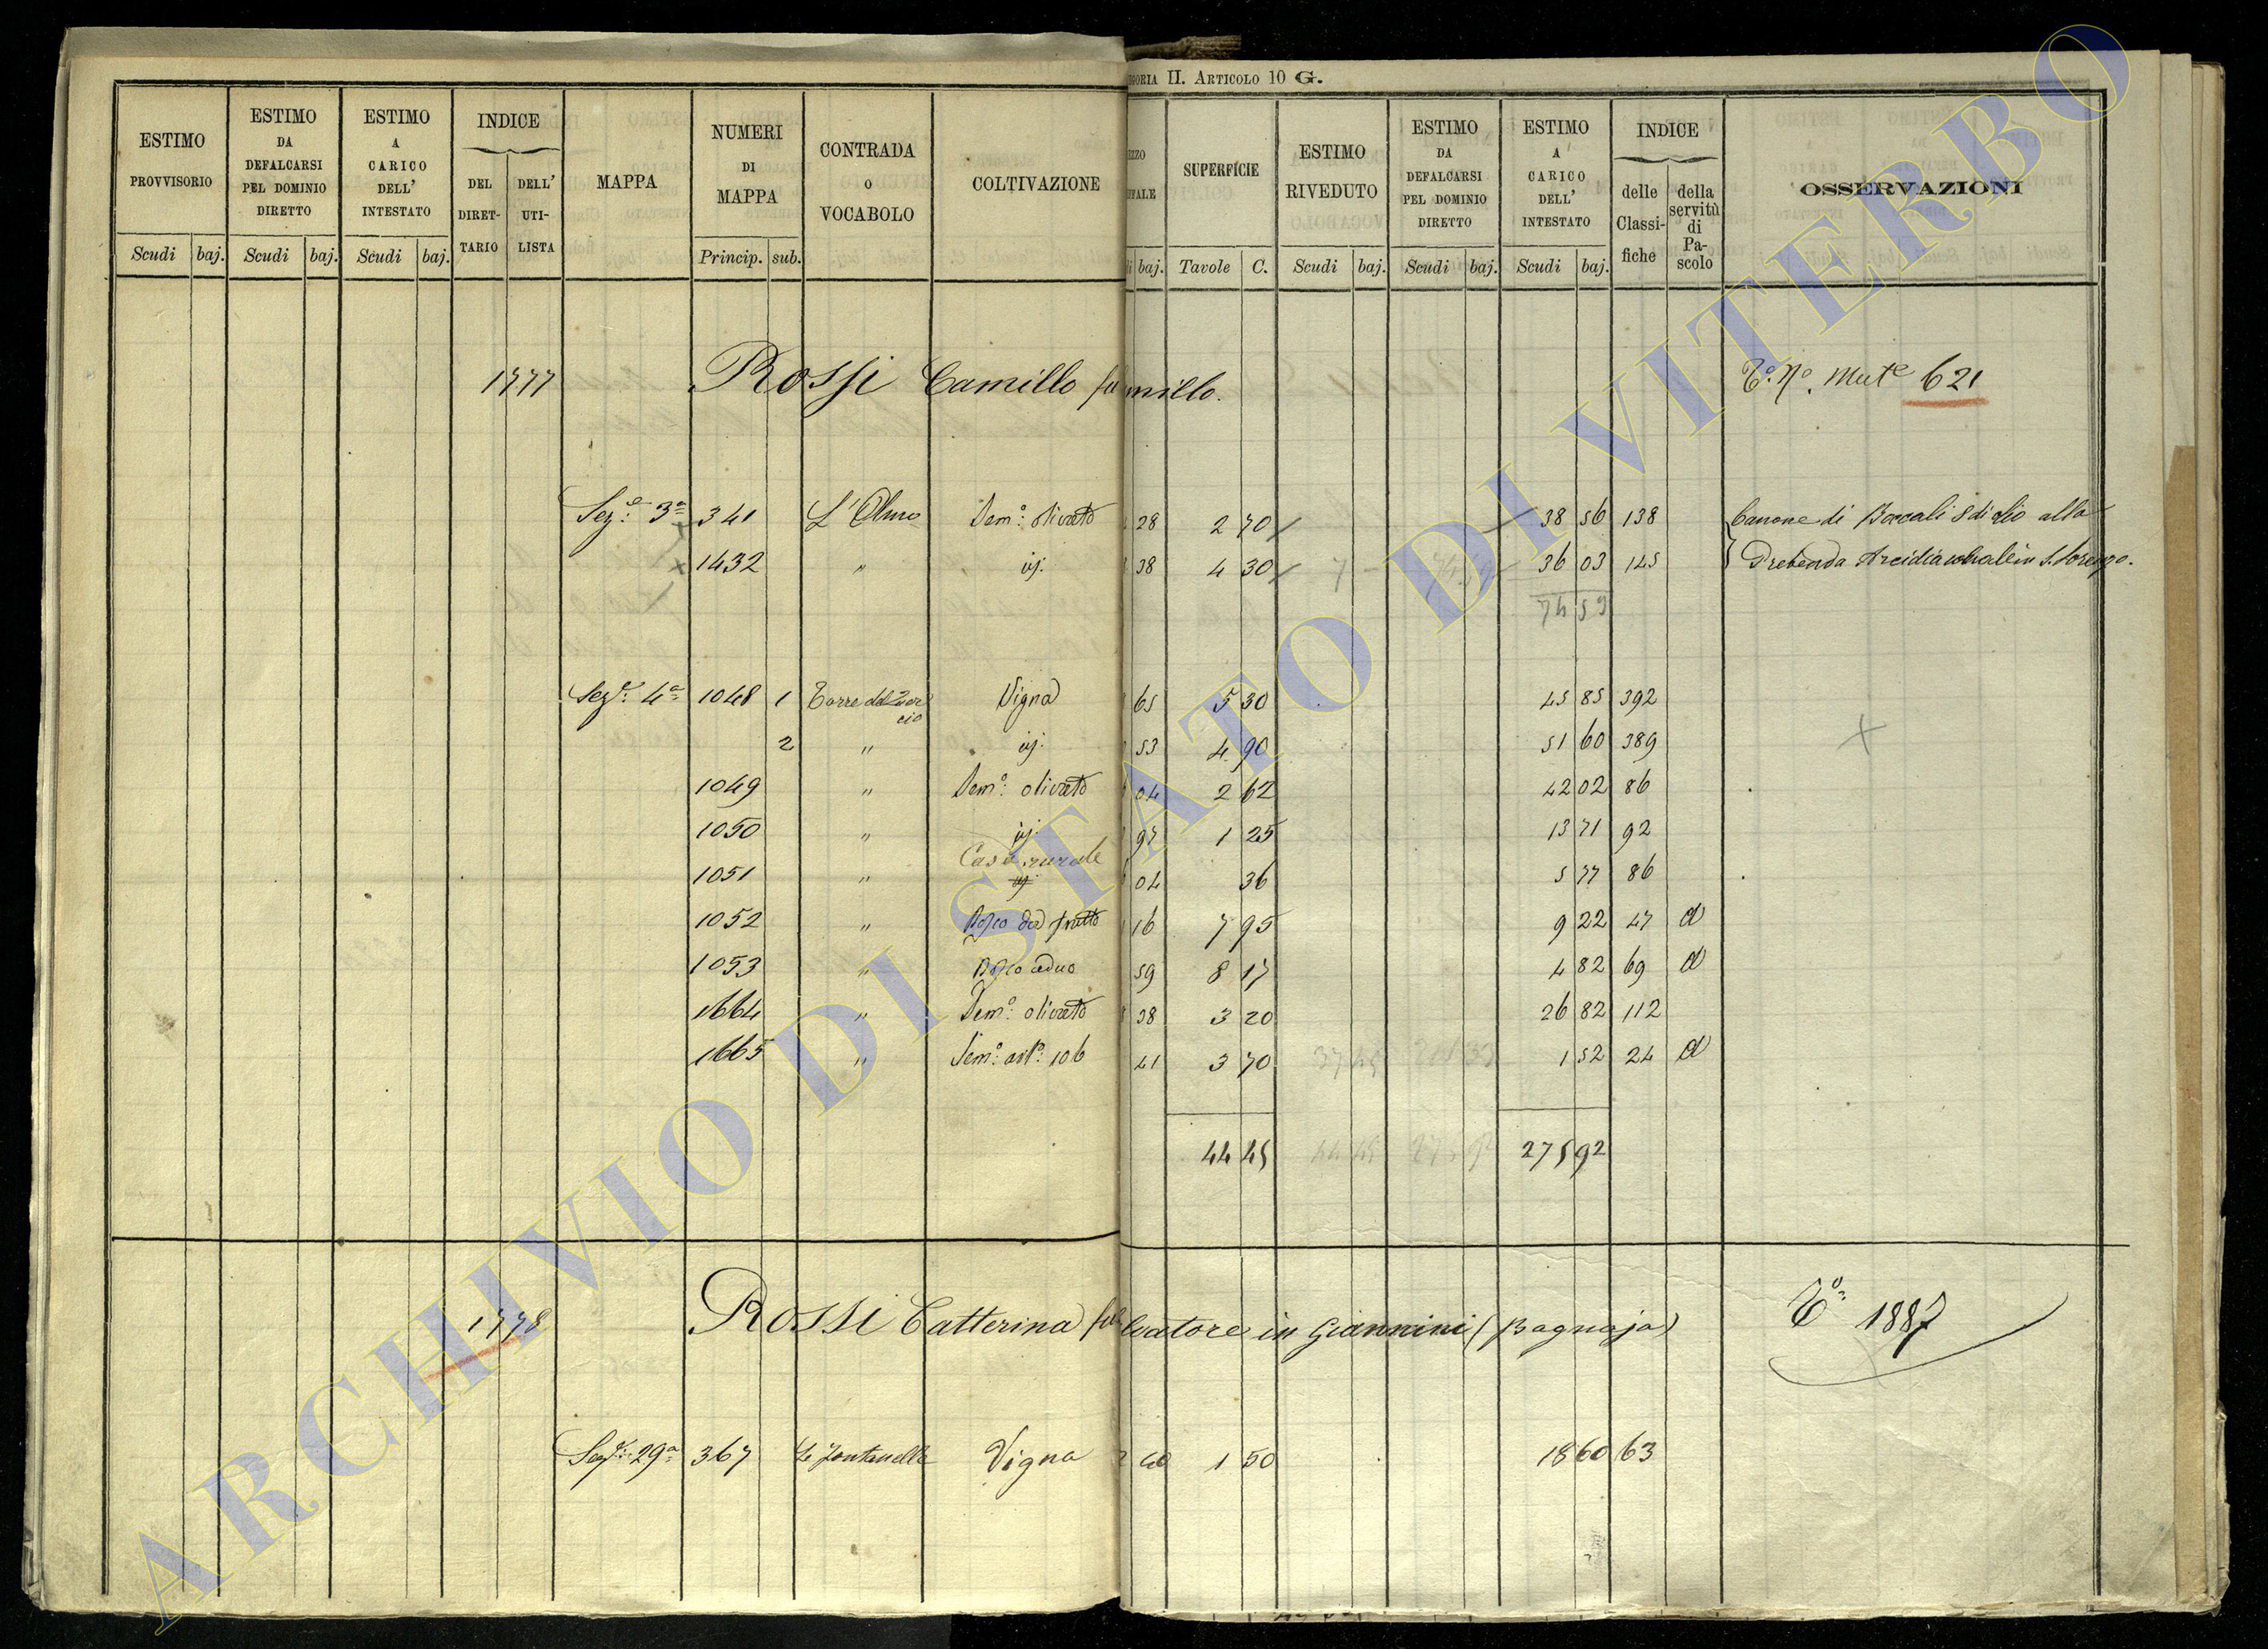 GORIA II. ARTICOLO 10 G.
ESTIMO PROVVISORIO
ESTIMO DA DEFALCARSI PEL DOMINIO DIRETTO
ESTIMO A CARICO DELL' INTESTATO
INDICE
DEL DIRETTARIO
DELL' UTILISTA
MAPPA
NUMERI DI MAPPA
CONTRADA O VOCABOLO
COLTIVAZIONE
SUPERFICIE
ESTIMO RIVEDUTO
ESTIMO DA DEFALCARSI PEL DOMINIO DIRETTO
ESTIMO A CARICO DELL' INTESTATO
INDICE
delle Classifiche
della servitù di Pascolo
OSSERVAZIONI
Scudi baj. Scudi baj. Scudi baj. Princip. sub. baj. Tavole C. Scudi baj. Scudi baj. Scudi baj.
1777 Rossi Camillo fu millo. T.º Nº Mute 621
Sezᵉ: 3ª 341 L'Olmo Semº: olivato 28 2 70 38 56 138 Canone di Boccali 8 di olio alla
1432 " id. 38 4 30 36 03 145 Prebenda Arcidiaconale in S. Lorenzo.
74 59
Sezᵉ: 4ª 1048 1 Vigna 65 5 30 45 85 392
2 " id. 53 4 90 51 60 389
1049 " Semº: olivato 04 2 62 42 02 86
1050 " id. 97 1 25 13 71 92
Casa rurale
1051 " id. 04 36 5 77 86
1052 " Bosco da frutto 16 7 95 9 22 47 d
1053 " Bosco ceduo 59 8 17 4 82 69 d
1664 " Semº: olivato 38 3 20 26 82 112
1665 " Semº: 106 41 3 70 1 52 24 d
44 45 275 92
1778 Rossi Catterina fu lvatore in Giannini (Bagnaja) T.º 1887
Sezᵉ: 29ª 367 Le Fontanelle Vigna 40 1 50 18 60 63
ARCHIVIO DI STATO DI VITERBO